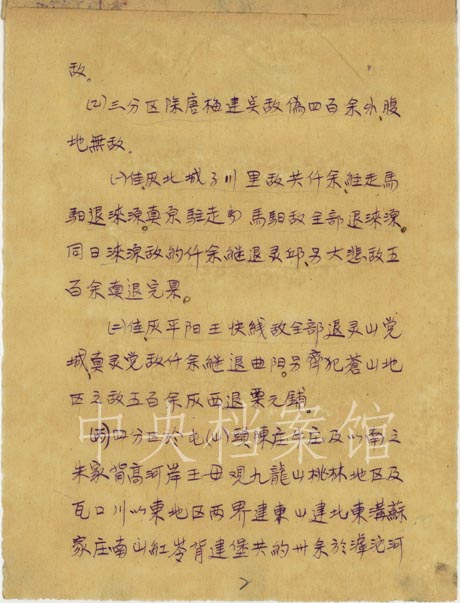 敌。
(2)三分区除唐梅建吳敌偽四百余外、腹
地無敌。
(一)佳灰北城子川里敌共仟余経走馬
駅退淶源。真京駐走馬駅敌全部退淶源。
同日淶源敌約仟余継退灵邱。另大悲敌五
百余真退完果。
(二)佳灰平阳王快线敌全部退灵山党
城、真灵党敌仟余継退曲陽。另齊犯蒼山地
区之敌五百余灰西退栗元铺。
四分区於屯(山)頭陳庄 庄及以南之
朱家背高河岸王母观九龍山桃林地区及
瓦口川以東地区两界建東山建北東溝蘇
家庄南山紅岺背建堡共約卅余於滹沱河
2
中央档案馆